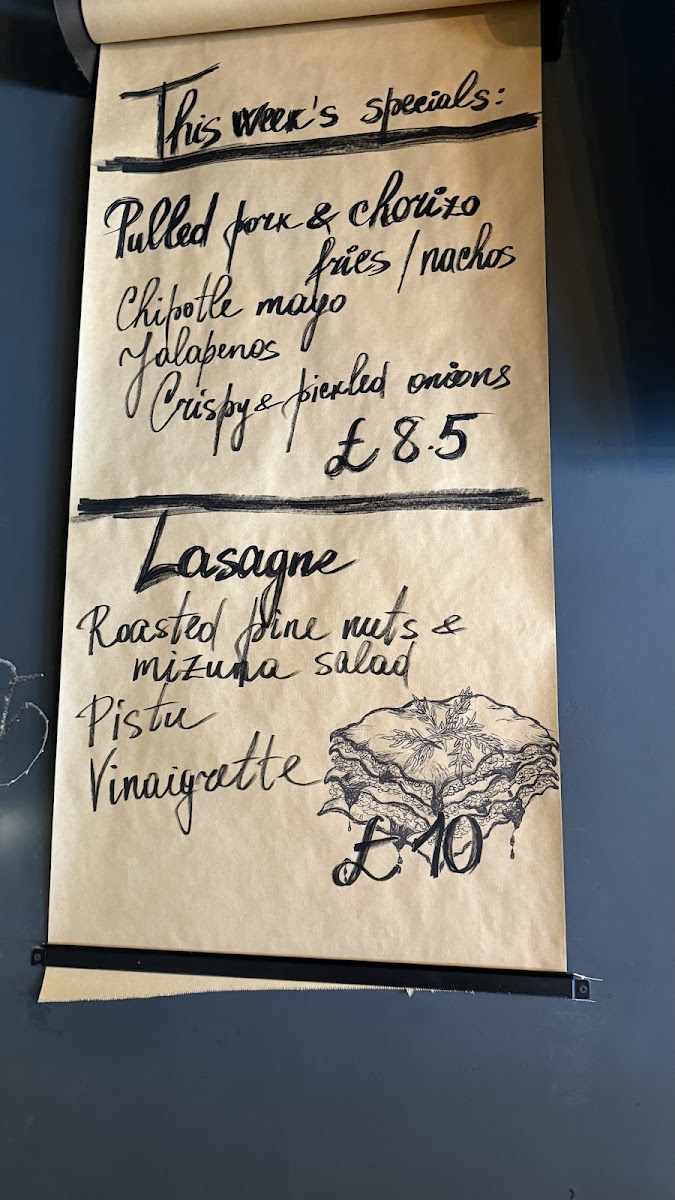 This week's specials:
Pulled pork & chorizo
fries / nachos
Chipotle mayo
Jalapenos
Crispy & pickled onions
£ 8.5
Lasagne
Roasted pine nuts &
mizuna salad
Pistu
Vinaigrette
£ 10